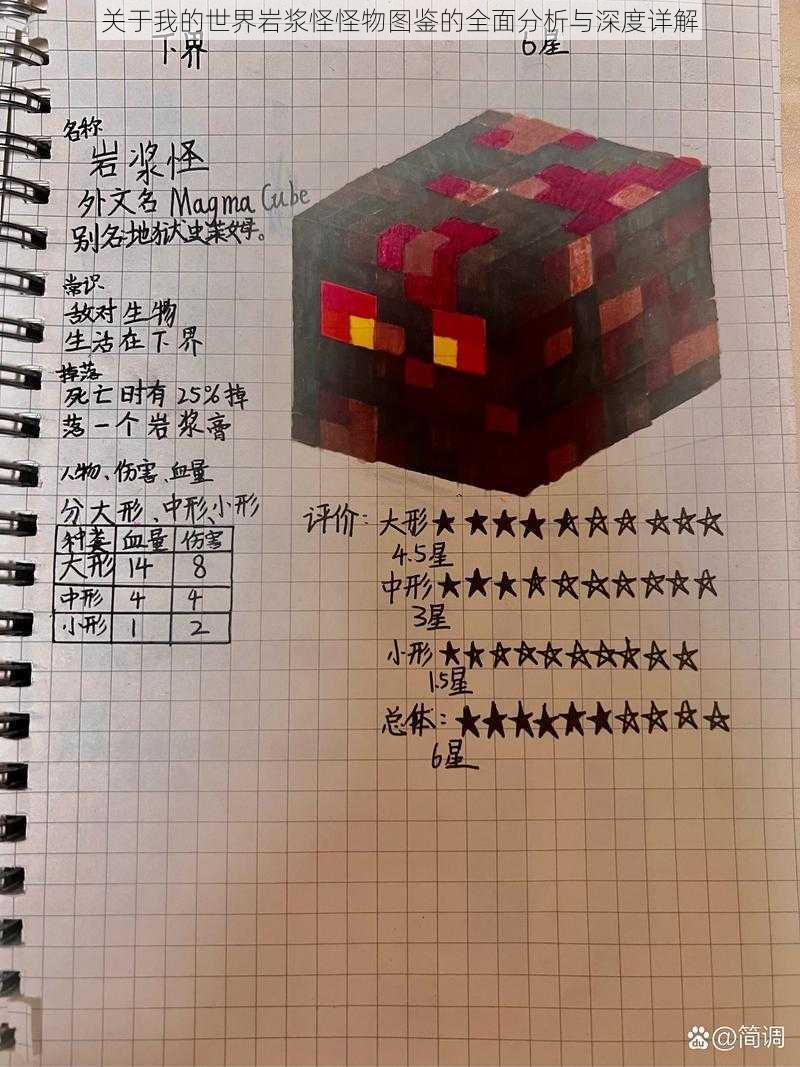 关于我的世界岩浆怪怪物图鉴的全面分析与深度详解
下界
6星
名称
岩浆怪
外文名 Magma Cube
别名地狱史莱姆。
常识
敌对生物
生活在下界
掉落
死亡时有25%掉
落一个岩浆膏
人物、伤害、血量
分大形、中形、小形
种类 血量 伤害
大形 14 8
中形 4 4
小形 1 2
评价：大形★★★★☆☆☆☆☆☆
4.5星
中形★★★☆☆☆☆☆☆☆
3星
小形★☆☆☆☆☆☆☆☆☆
1.5星
总体：★★★★★★☆☆☆☆
6星
Bai du @简调